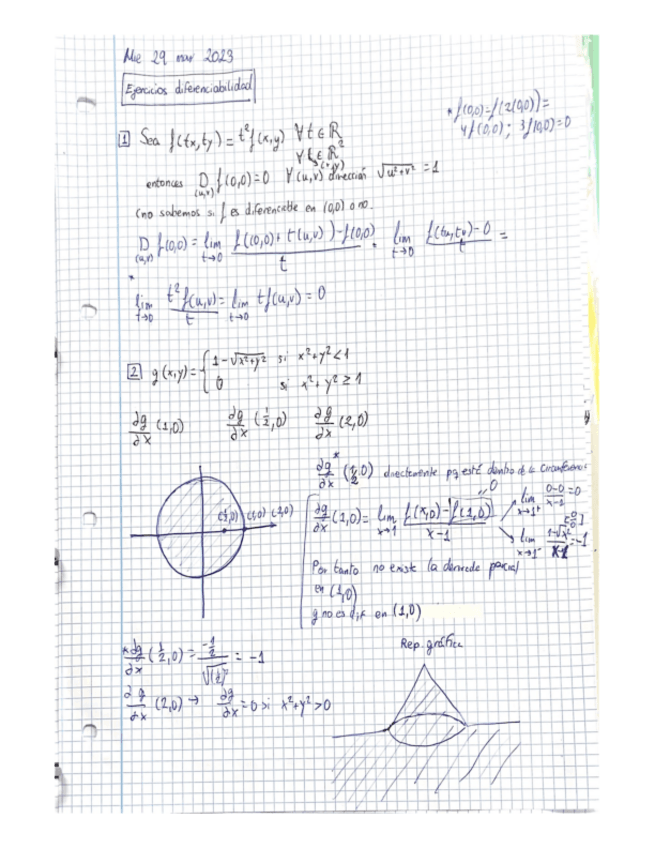 Mie 29 mar 2023
Ejercicios diferenciabilidad
* f(0,0)=f(2(0,0))=
4f(0,0); 3f(0,0)=0
1 Sea f(tx,ty) = t²f(x,y) ∀t∈ℝ
∀(x,y)∈ℝ²
entonces D(u,v) f(0,0)=0 ∀(u,v) dirección √u²+v² = 1
(no sabemos si f es diferenciable en (0,0) o no.
D(u,v) f(0,0) = lim t→0 f((0,0)+t(u,v))-f(0,0) / t = lim t→0 f(tu,tv)-0 / t =
*
lim t→0 t²f(u,v) / t = lim t→0 tf(u,v) = 0
2 g(x,y) = { 1-√x²+y² si x²+y²<1
0 si x²+y² ≥ 1
∂g/∂x (1,0) ∂g/∂x (1/2,0) ∂g/∂x (2,0)
∂g/∂x* (1/2,0) directamente pq está dentro de la circunferencia
(1/2,0) (1,0) (2,0)
∂g/∂x (1,0) = lim x→1 f(x,0)-f(1,0) / x-1
0
lim x→1⁺ 0-0/x-1 = 0
[0/0]
lim x→1⁻ 1-√x²/x-1 = -1
Por tanto no existe la derivada parcial
en (1,0)
g no es dif en (1,0)
* ∂g/∂x (1/2,0) = -1/2 / √(1/2)² = -1
∂g/∂x (2,0) → ∂g/∂x = 0 si x²+y²>0
Rep. gráfica